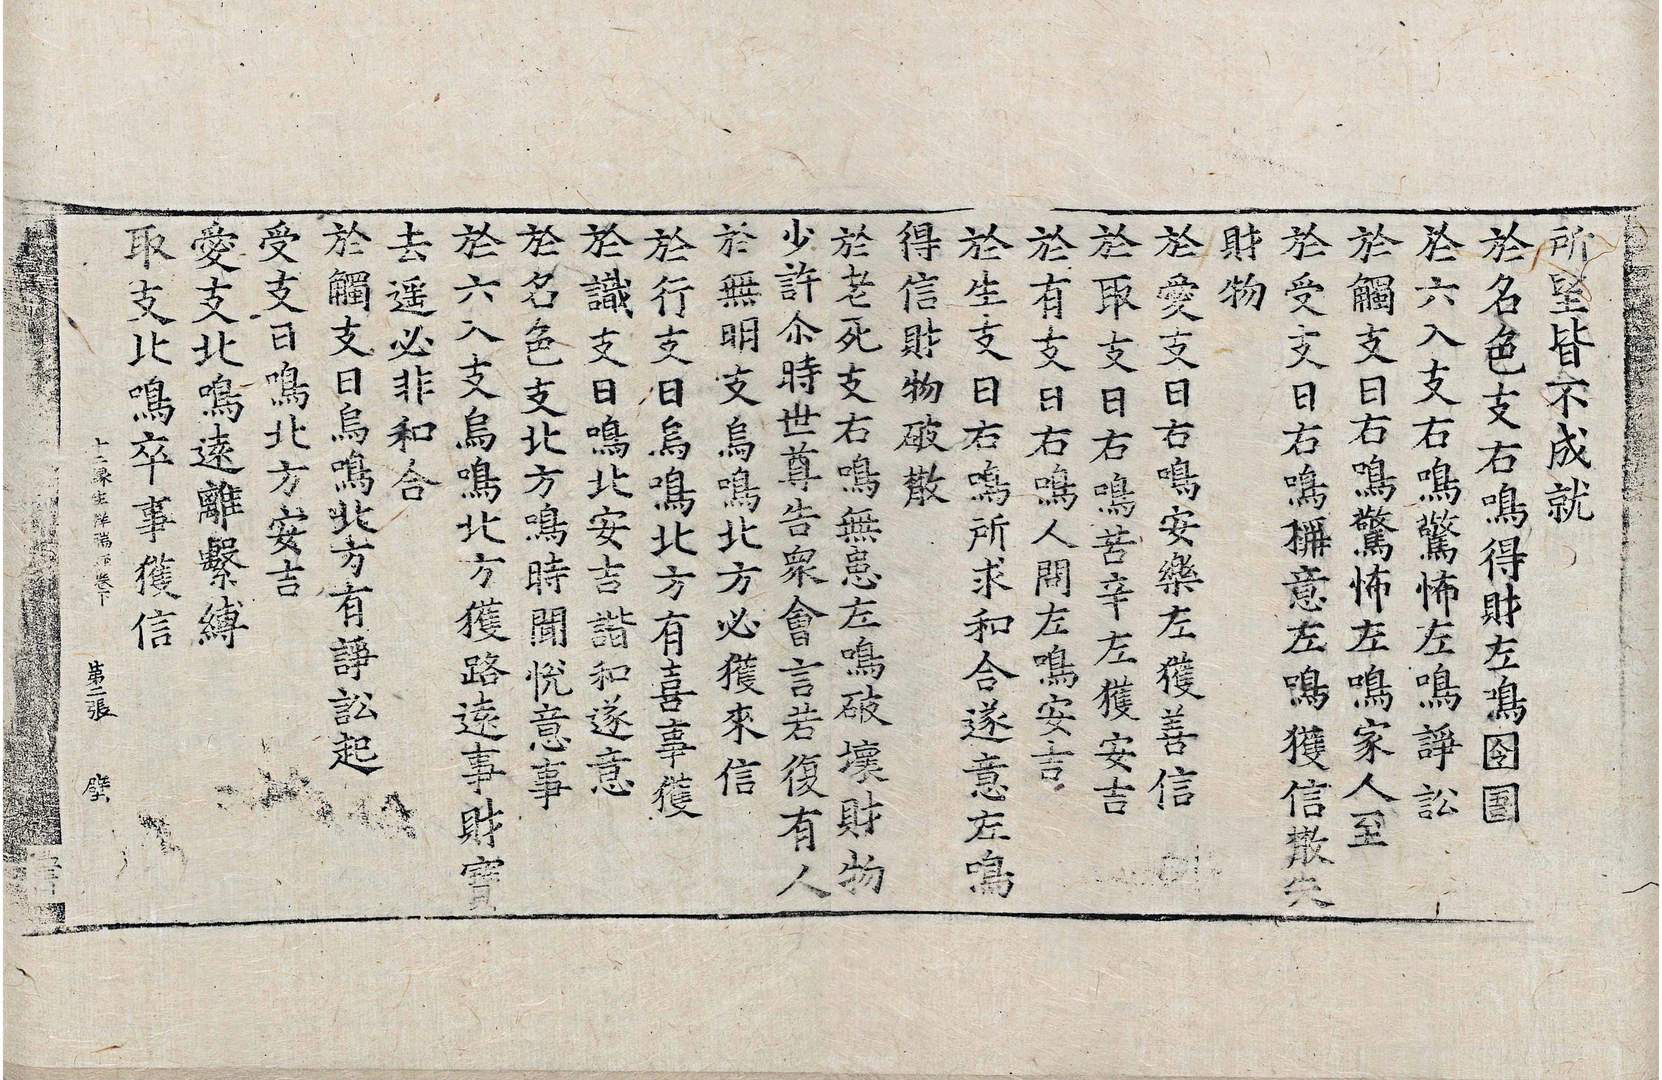 所望皆不成就
於名色支右鳴得財左鳴囹圄
於六入支右鳴驚怖左鳴諍訟
於觸支日右鳴驚怖左鳴家人至
於受支日右鳴稱意左鳴獲信散失
財物
於愛支日右鳴安樂左獲善信
於取支日右鳴苦辛左獲安吉
於有支日右鳴人鬪左鳴安吉
於生支日右鳴所求和合遂意左鳴
得信財物破散
於老死支右鳴無患左鳴破壞財物
少許尒時世尊告衆會言若復有人
於無明支烏鳴北方必獲來信
於行支日烏鳴北方有喜事獲
於識支日鳴北安吉諧和遂意
於名色支北方鳴時聞悅意事
於六入支烏鳴北方獲路遠事財寶
去遥必非和合
於觸支日烏鳴北方有諍訟起
受支日鳴北方安吉
愛支北鳴遠離繫縛
取支北鳴卒事獲信
十二緣生祥瑞經卷下 第二張 璧